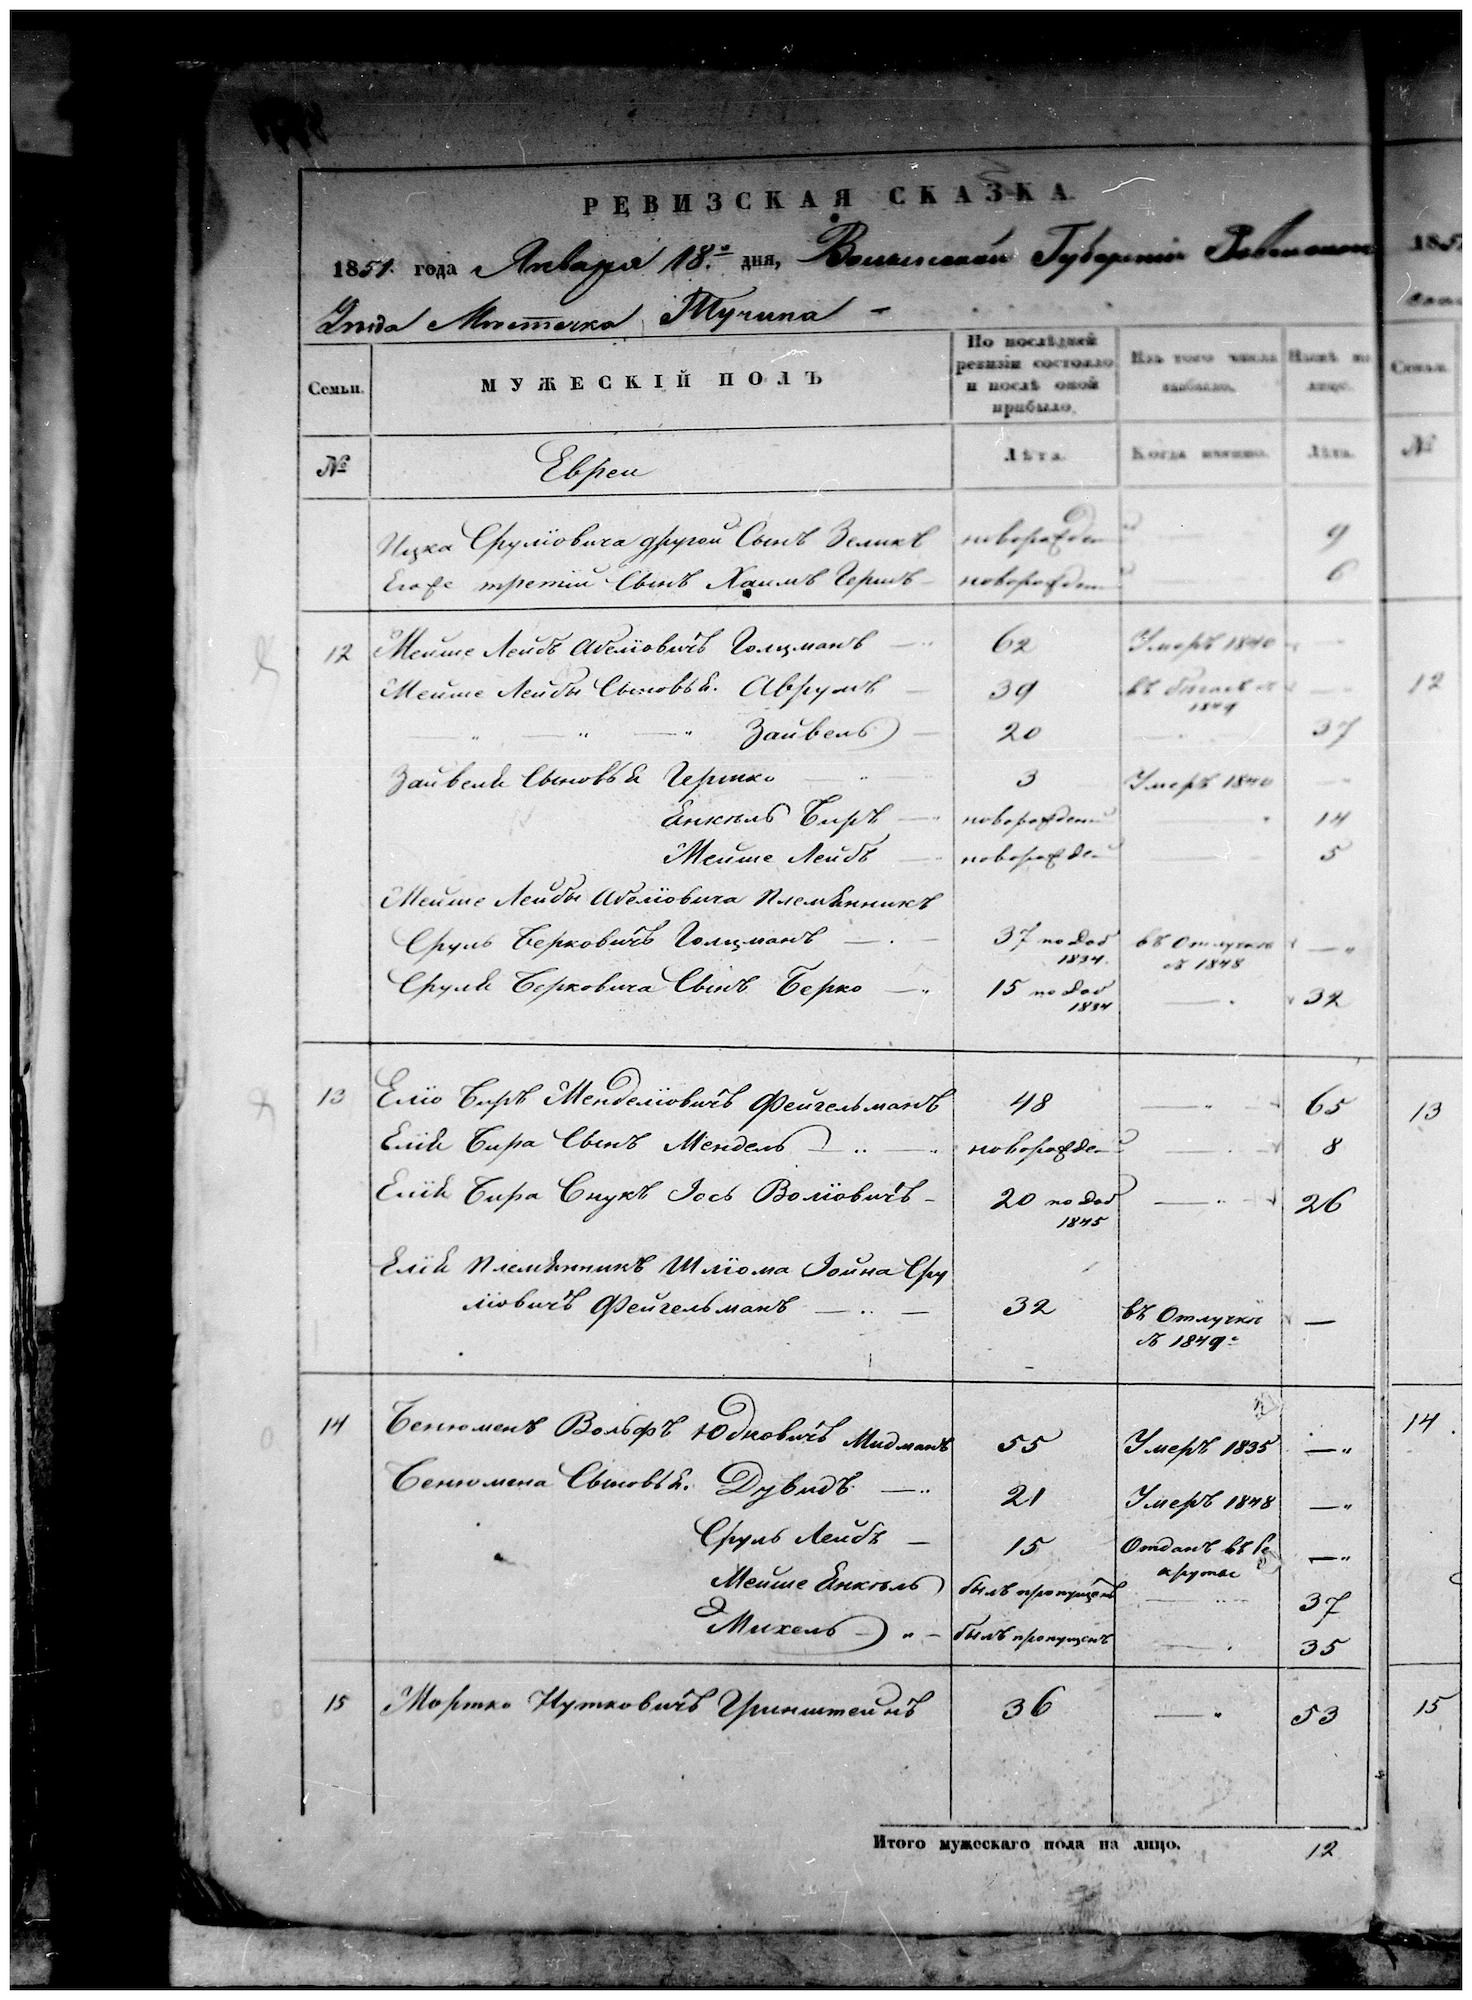 РЕВИЗСКАЯ СКАЗКА
1851 года Января 18го дня, Волынской Губернии Ровенскаго
Уезда Местечка Тучина
Семьи. МУЖЕСКІЙ ПОЛЪ По послѣдней ревизіи состояло и послѣ оной прибыло. Изъ того числа выбыло. Нынѣ на лицо. Семьи.
№ Евреи Лѣта. Когда именно. Лѣта. №
Ицка Срулiовича другой Сынъ Зеликъ новорожден 9
Егоже третiй Сынъ Хаимъ Гершъ новорожден 6
12 Мейше Лейбъ Абелiовичъ Голцманъ 62 Умеръ 1840 12
Мейше Лейбы Сыновья. Аврумъ 39 въ бегахъ с 1849
Зайвель 20 37
Зайвеля Сыновья Гершко 3 Умеръ 1840
Янкель Беръ новорожден 14
Мейше Лейбъ новорожден 5
Мейше Лейбы Абелiовича племянникъ
Сруль Берковичъ Голцманъ 37 по доб 1834. въ отлучке с 1848
Сруля Берковича Сынъ Берко 15 по доб 1834 32
13 Елiо Беръ Менделiовичъ Фейгельманъ 48 65 13
Елiи Бера Сынъ Мендель новорожден 8
Елiи Бера Внукъ Iось Волiовичъ 20 по доб 1845 26
Елiи племянникъ Шлiома Iойна Сру
лiовичъ Фейгельманъ 32 въ Отлучке с 1849го
14 Бенюменъ Вольфъ Юдковичъ Мидманъ 55 Умеръ 1835 14
Бенюмена Сыновья. Дувидъ 21 Умеръ 1848
Сруль Лейбъ 15 Отданъ въ Рекруты
Мейше Янкель былъ пропущенъ 37
Михель былъ пропущенъ 35
15 Мортко Нутковичъ Гринштейнъ 36 53 15
Итого мужескаго пола на лицо. 12